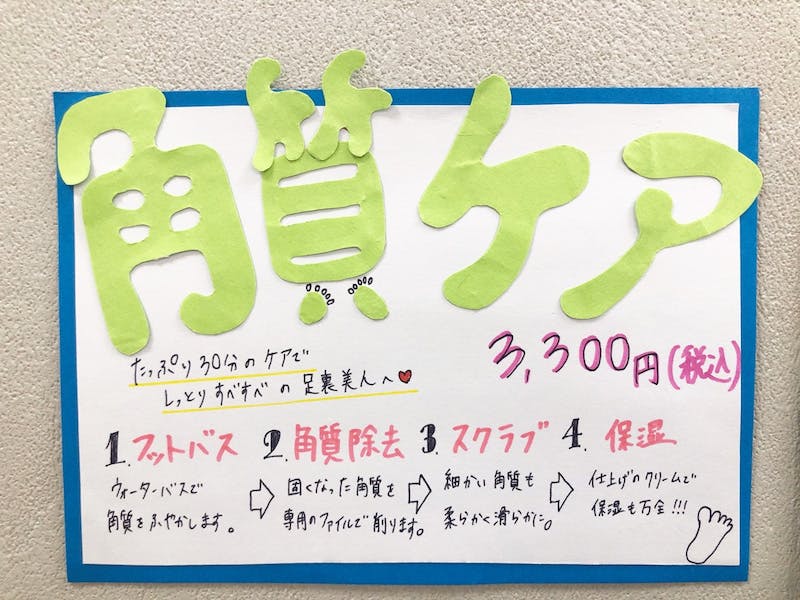 角質ケア
3,300円(税込)
たっぷり30分のケアで
しっとりすべすべの足裏美人へ♥
1.フットバス 2.角質除去 3.スクラブ 4.保湿
ウォーターバスで
角質をふやかします。
⇨
固くなった角質を
専用のファイルで削ります。
⇨
細かい角質も
柔らかく滑らかに。
⇨
仕上げのクリームで
保湿も万全!!!